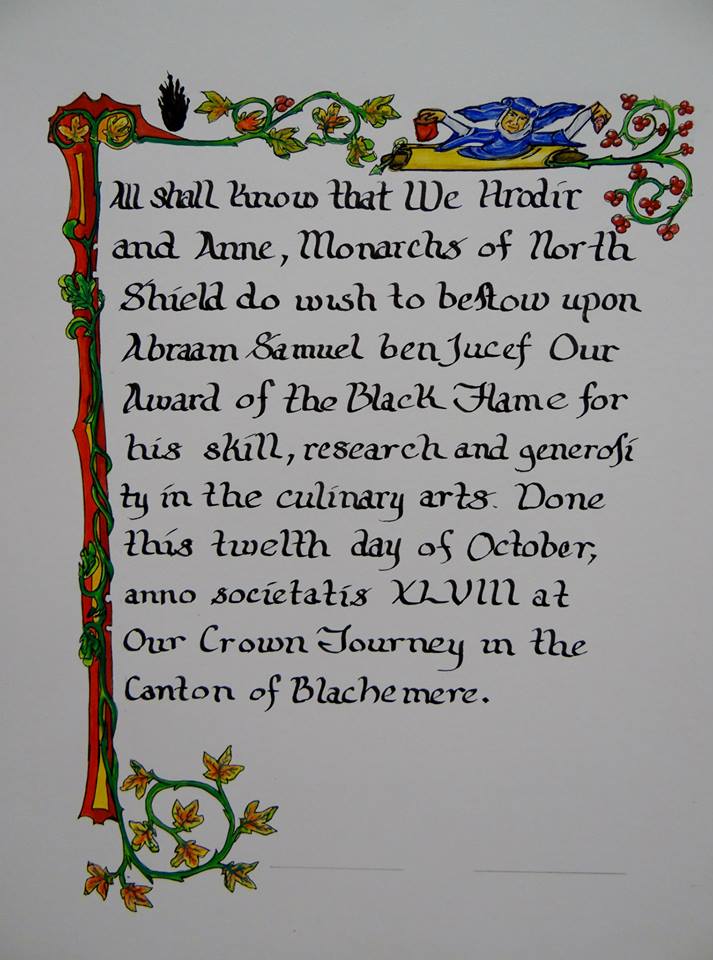 All shall know that We Hrodir
and Anne, Monarchs of North
Shield do wish to beſtow upon
Abraam Samuel ben Jucef Our
Award of the Black Flame for
his skill, research and generoſi
ty in the culinary arts. Done
this twelth day of October,
anno societatis XLVIII at
Our Crown Tourney in the
Canton of Blachemere.